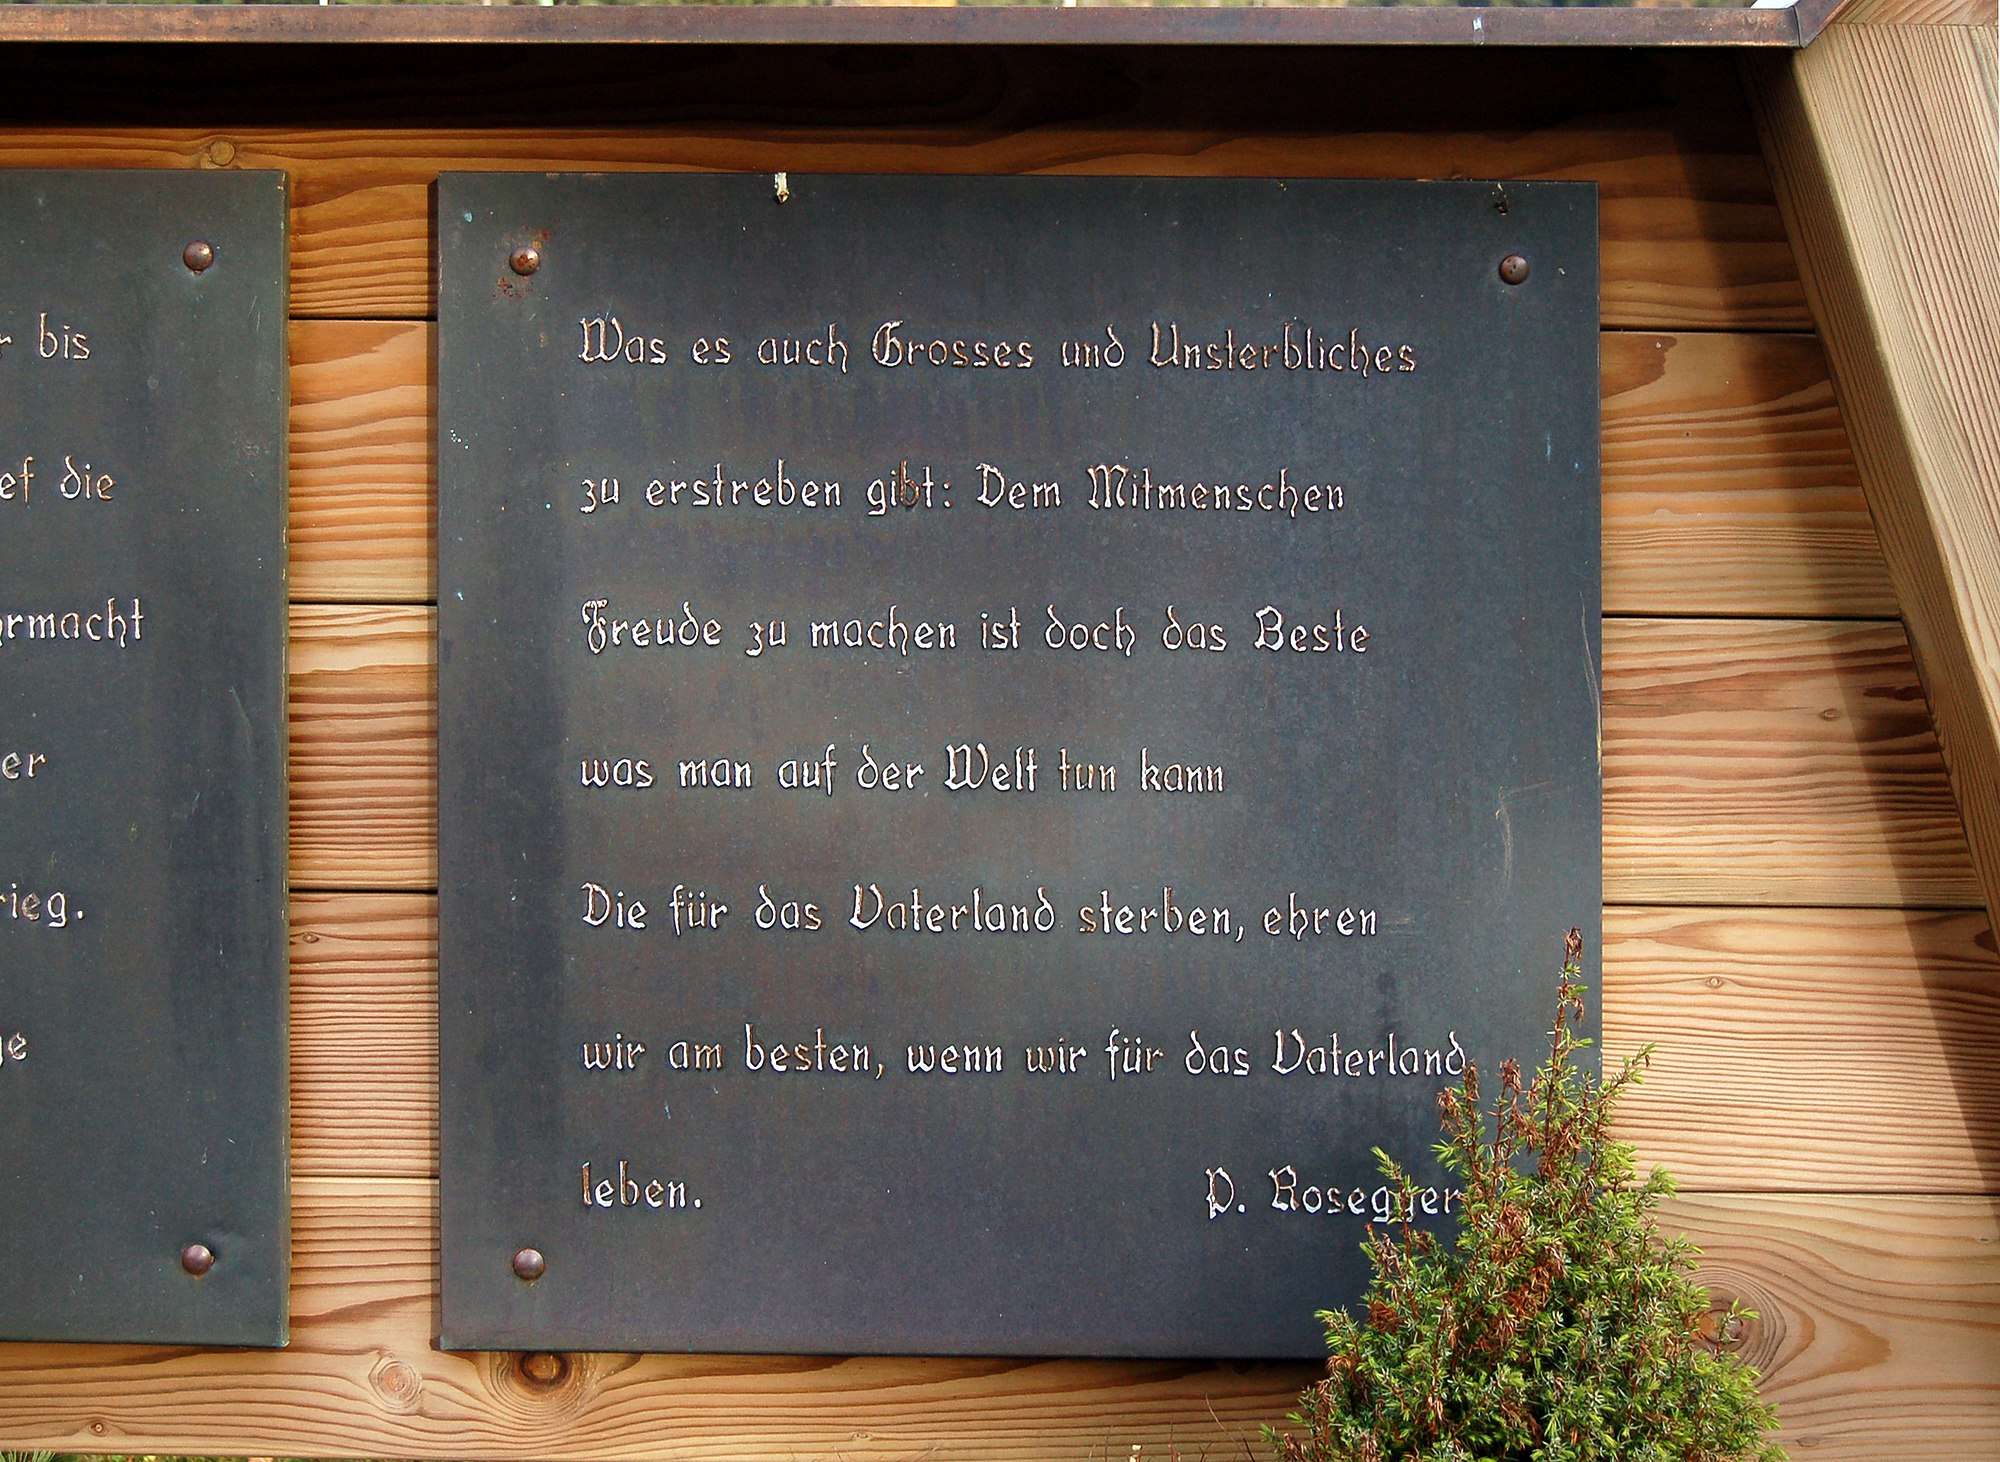 bis
die
er
Was es auch Grosses und Unsterbliches
zu erstreben gibt: Dem Mitmenschen
Freude zu machen ist doch das Beste
was man auf der Welt tun kann
Die für das Vaterland sterben, ehren
wir am besten, wenn wir für das Vaterland
leben.
P. Rosegger